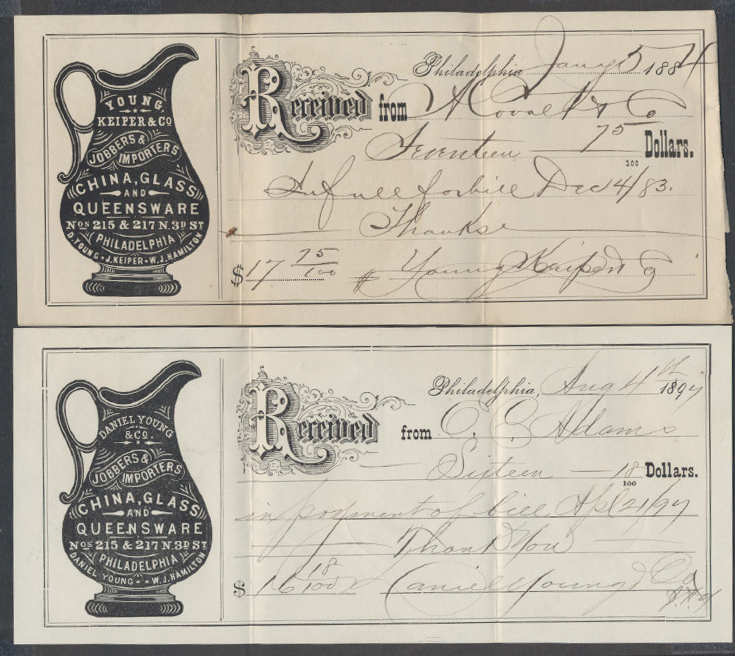 YOUNG,
KEIPER & CO
JOBBERS &
IMPORTERS
CHINA, GLASS
AND
QUEENSWARE
NOS 215 & 217 N. 3D ST
PHILADELPHIA
D. YOUNG • J. KEIPER • W. J. HAMILTON
Philadelphia Jany 5 1884
Received from A Covalt & Co
Seventeen 75/100 Dollars.
In full for bill Dec 4/83.
Thanks
$17 75/100 Young Keiper & Co
DANIEL YOUNG
& CO.
JOBBERS &
IMPORTERS
CHINA, GLASS
AND
QUEENSWARE
NOS 215 & 217 N. 3D ST
PHILADELPHIA
DANIEL YOUNG • W. J. HAMILTON
Philadelphia, Aug 4th 1897
Received from C. C. Adams
Sixteen 18/100 Dollars.
in payment of bill Apl 21/97
Thank You
$16 18/100 Daniel Young & Co